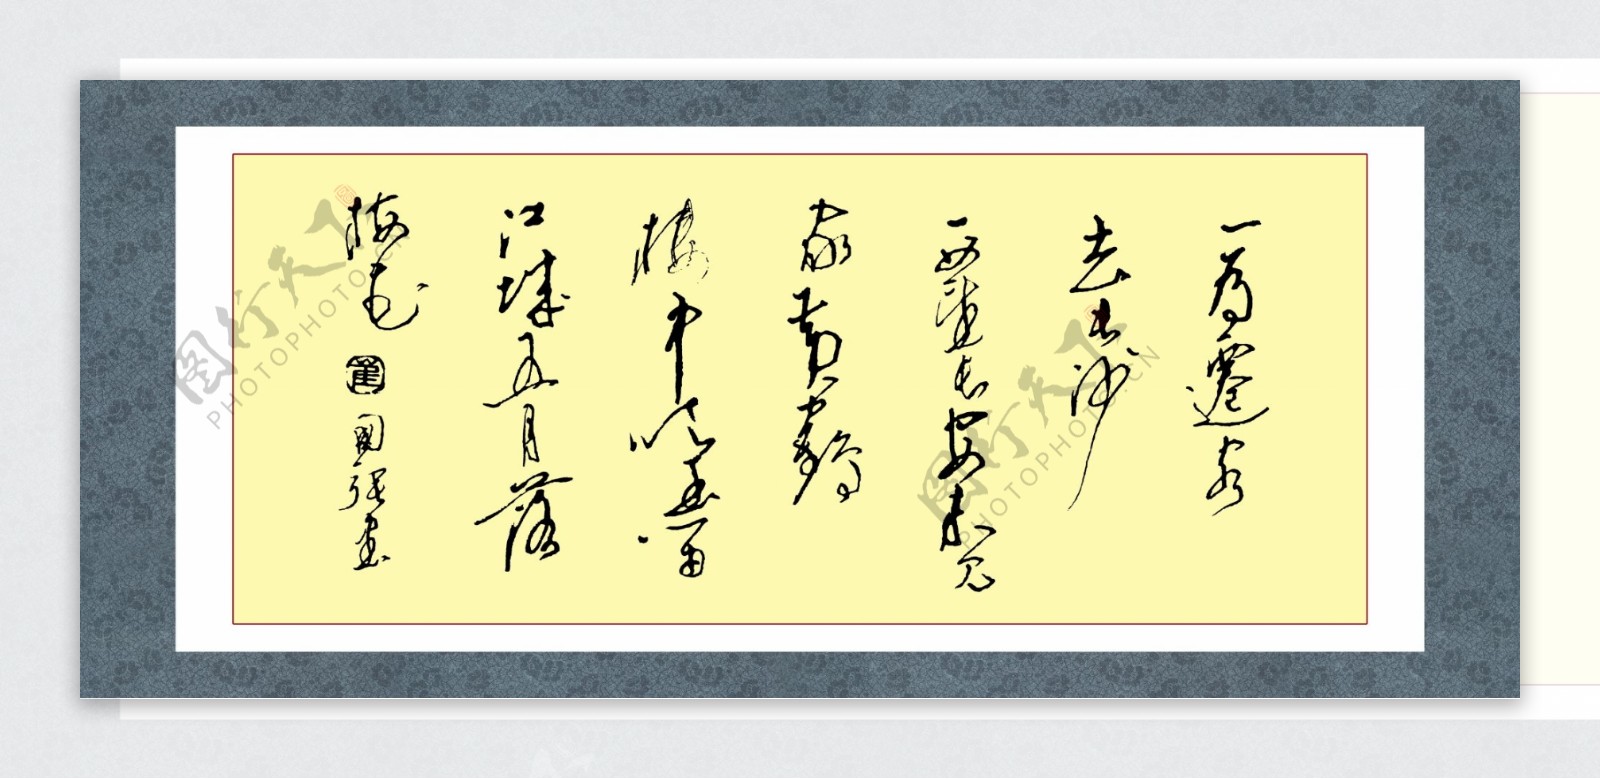 一为遷客
去长沙
西望长安不见
家黄鶴
楼中吹玉笛
江城五月落
梅花
图行天下
PHOTOPHOTO.CN
图行天下
PHOTOPHOTO.CN